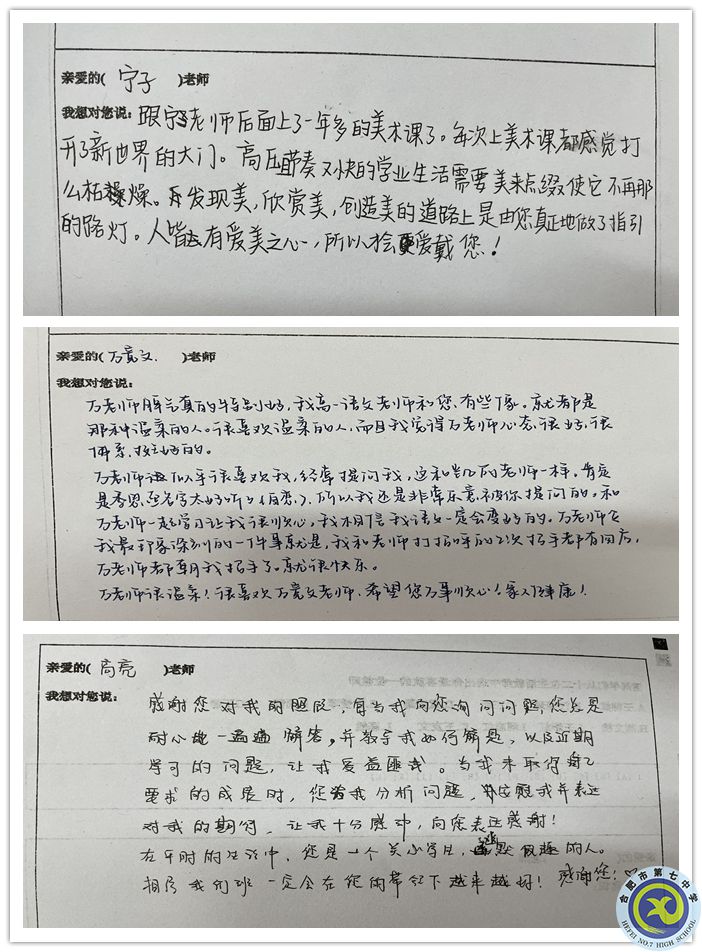 亲爱的(宁子 )老师
我想对您说:跟宁老师后面上了一年多的美术课了。每次上美术课都感觉打
开了新世界的大门。高压节奏又快的学业生活需要美来点缀使它不再那
么枯燥。在发现美,欣赏美,创造美的道路上是由您真正地做了指引
的路灯。人皆有爱美之心,所以才会更爱戴您!
亲爱的(万竟文 )老师
我想对您说:
万老师脾气真的特别好,我高一语文老师和您有些像。就都是
那种温柔的人。很喜欢温柔的人,而且我觉得万老师心态很好,很
佛系,挺好的。
万老师似乎很喜欢我,经常提问我,这和老师一样。肯定
是名字太好听了(自恋)。所以我还是非常乐意被你提问的。和
万老师一起学习让我很顺心,我相信我语文一定会变好的。万老师令
我最印象深刻的一件事就是,我和老师打招呼的2次招手都有回应,
万老师都朝我招手了。就很快乐。
万老师很温柔!很喜欢万竟文老师,希望您万事顺心!家人健康!
亲爱的(高亮 )老师
我想对您说:
感谢您对我的照顾,每当我向您询问问题,您总是
耐心地一遍遍解答,并教导我如何解题,以及近期
学习的问题,让我受益匪浅。当我未取得
要求的成绩时,您为我分析问题,并安慰我并表达
对我的期待,让我十分感动,向您表达感谢!
在平时的生活中,您是一个关心学生,幽默风趣的人。
相信我们班一定会在您的带领下越来越好!感谢您!
合肥市第七中学
HEFEI NO.7 HIGH SCHOOL